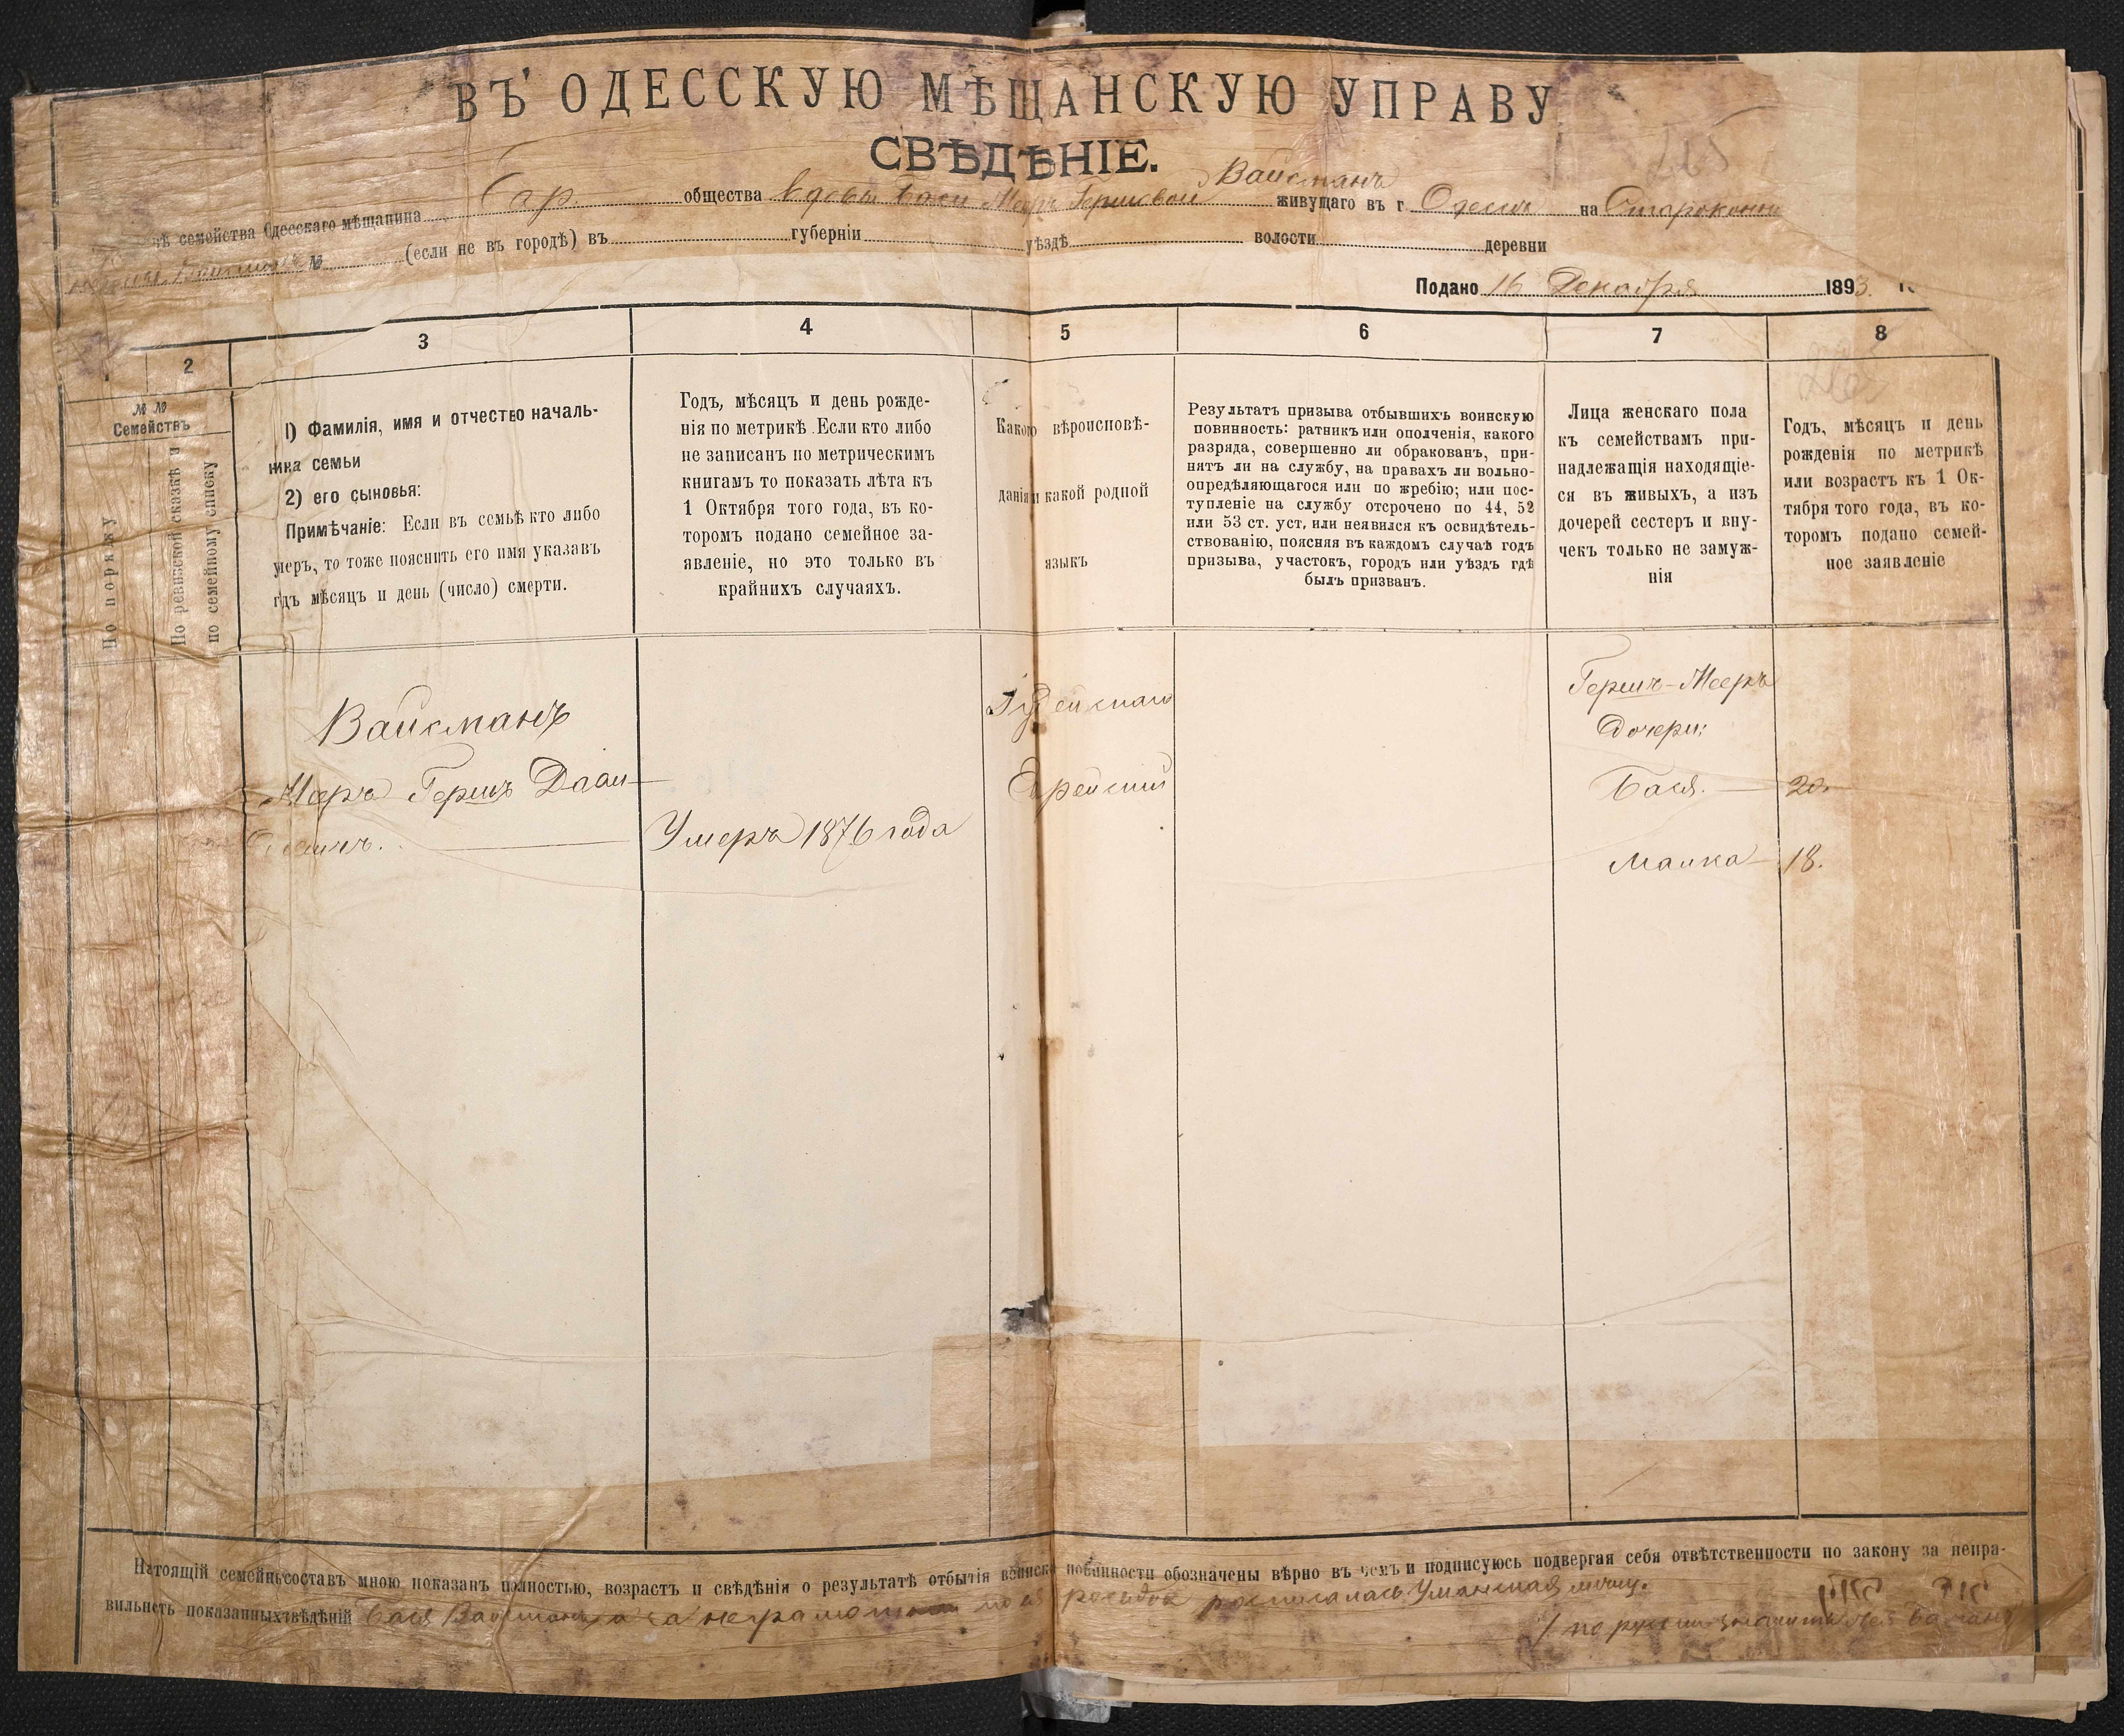 ВЪ ОДЕССКУЮ МѢЩАНСКУЮ УПРАВУ
СВѢДѢНІЕ.
265
Вайсманъ
семейства Одесскаго мѣщанина общества вдовы Баси Меръ Гершовой живущаго въ г. Одессѣ на Староконно
№ (если не въ городѣ) въ губерніи уѣздѣ волости деревни
Подано 16 Декабря 1893
2
3
4
5
6
7
8
№ №
Семействъ
По порядку
По ревизской сказкѣ и
по семейному списку
1) Фамилія, имя и отчество началь-
ника семьи
2) его сыновья:
Примѣчаніе: Если въ семьѣ кто либо
умеръ, то тоже пояснить его имя указавъ
годъ мѣсяцъ и день (число) смерти.
Годъ, мѣсяцъ и день рожде-
нія по метрикѣ. Если кто либо
не записанъ по метрическимъ
книгамъ то показать лѣта къ
1 Октября того года, въ ко-
торомъ подано семейное за-
явленіе, но это только въ
крайнихъ случаяхъ.
Какого вѣроисповѣ-
данія и какой родной
языкъ
Результатъ призыва отбывшихъ воинскую
повинность: ратникъ или ополченія, какого
разряда, совершенно ли обракованъ, при-
нятъ ли на службу, на правахъ ли вольно-
опредѣляющагося или по жребію; или пос-
тупленіе на службу отсрочено по 44, 52
или 53 ст. уст, или неявился къ освидѣтель-
ствованію, поясняя въ каждомъ случаѣ годъ
призыва, участокъ, городъ или уѣздъ гдѣ
былъ призванъ.
Лица женскаго пола
къ семействамъ при-
надлежащія находящіе-
ся въ живыхъ, а изъ
дочерей сестеръ и вну-
чекъ только не замуж-
нія
Годъ, мѣсяцъ и день
рожденія по метрикѣ
или возрастъ къ 1 Ок-
тября того года, въ ко-
торомъ подано семей-
ное заявленіе
Вайсманъ
Меръ Гершъ
Умеръ 1876 года
Іудейскаго
Еврейскій
Гершъ-Мееръ
Дочери:
Бася. 20.
Малка 18.
Настоящій семейный составъ мною показанъ полностью, возрастъ и свѣдѣнія о результатѣ отбытія воинской повинности обозначены вѣрно въ чемъ и подписуюсь подвергая себя отвѣтственности по закону за непра-
вильность показанныхъ свѣдѣній Бася Вайсманъ, а за неграмотн росписалась Уманская мѣщ.